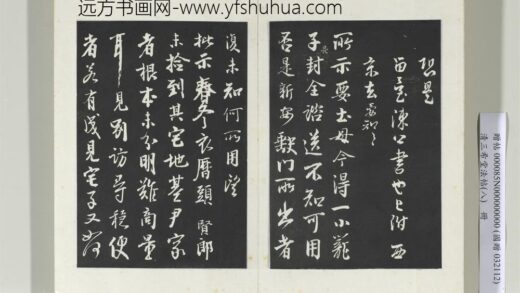 远方书画网-www.yfshuhua.com
恐是
西臺陳公書也已附西
京去
所示要土母今得一小籠
子封全諮送不知可用
否是新安歙門所出者
復未知何所用望
批示齊冬衣曆頭賢郎
未檢到其宅地基尹家
者根本未分明難商量
耳見別訪尋穩便
者若有成見宅子又
贈帖 000085N000000000 (國贈 032112)
清三希堂法帖(八) 冊